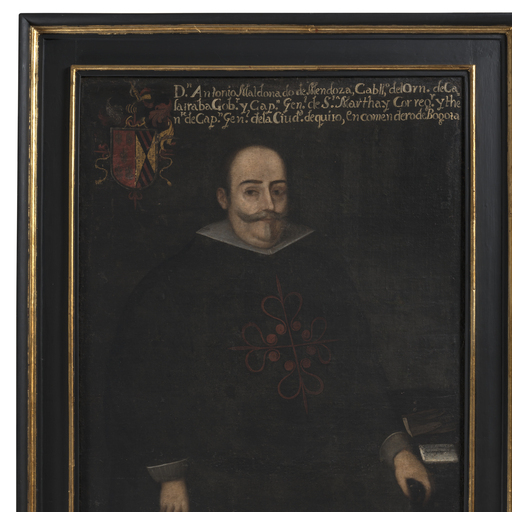 D.ⁿ Antonio Maldonado de Mendoza, Cabll.º del Orn. de Ca
latraba Gob.r y, Cap.ⁿ Gen.l de S.ta Martha y Correg.r y the
n.te de Cap.ⁿ Gen.l de la Ciud.d de quito, en comendero de Bogota